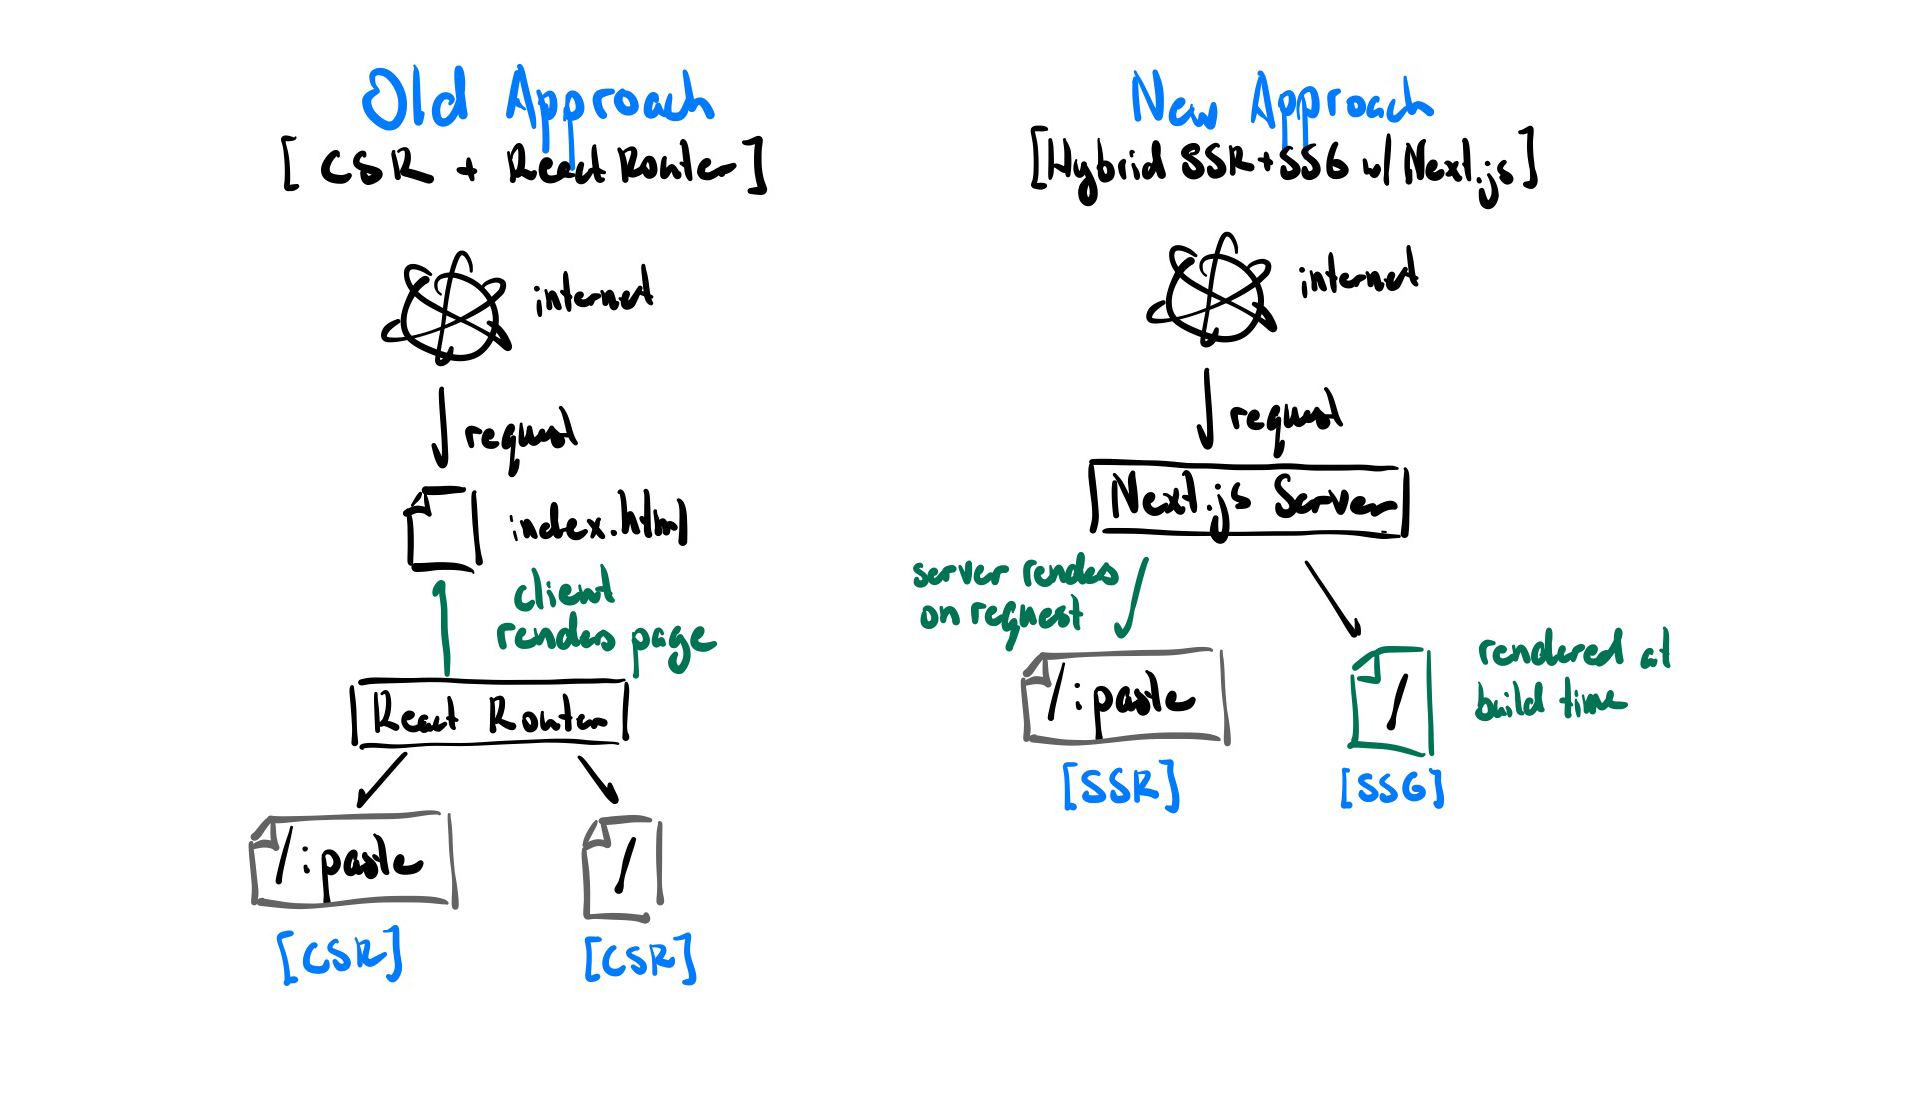 Old Approach
[CSR + React Router]
internet
request
index.html
client
renders page
React Router
/:paste
/
[CSR]
[CSR]
New Approach
[Hybrid SSR+SSG w/ Next.js]
internet
request
Next.js Server
server renders
on request
/:paste
/
rendered at
build time
[SSR]
[SSG]